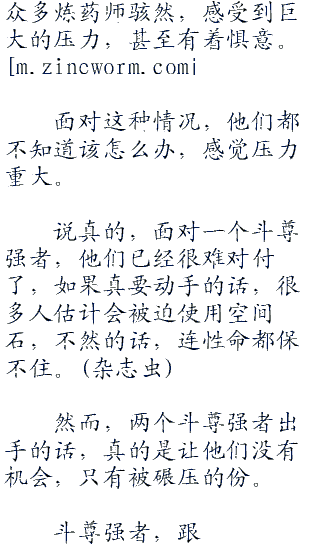 众多炼药师骇然，感受到巨
大的压力，甚至有着惧意。
[m.zincworm.com]
面对这种情况，他们都
不知道该怎么办，感觉压力
重大。
说真的，面对一个斗尊
强者，他们已经很难对付
了，如果真要动手的话，很
多人估计会被迫使用空间
石，不然的话，连性命都保
不住。(杂志虫)
然而，两个斗尊强者出
手的话，真的是让他们没有
机会，只有被碾压的份。
斗尊强者，跟